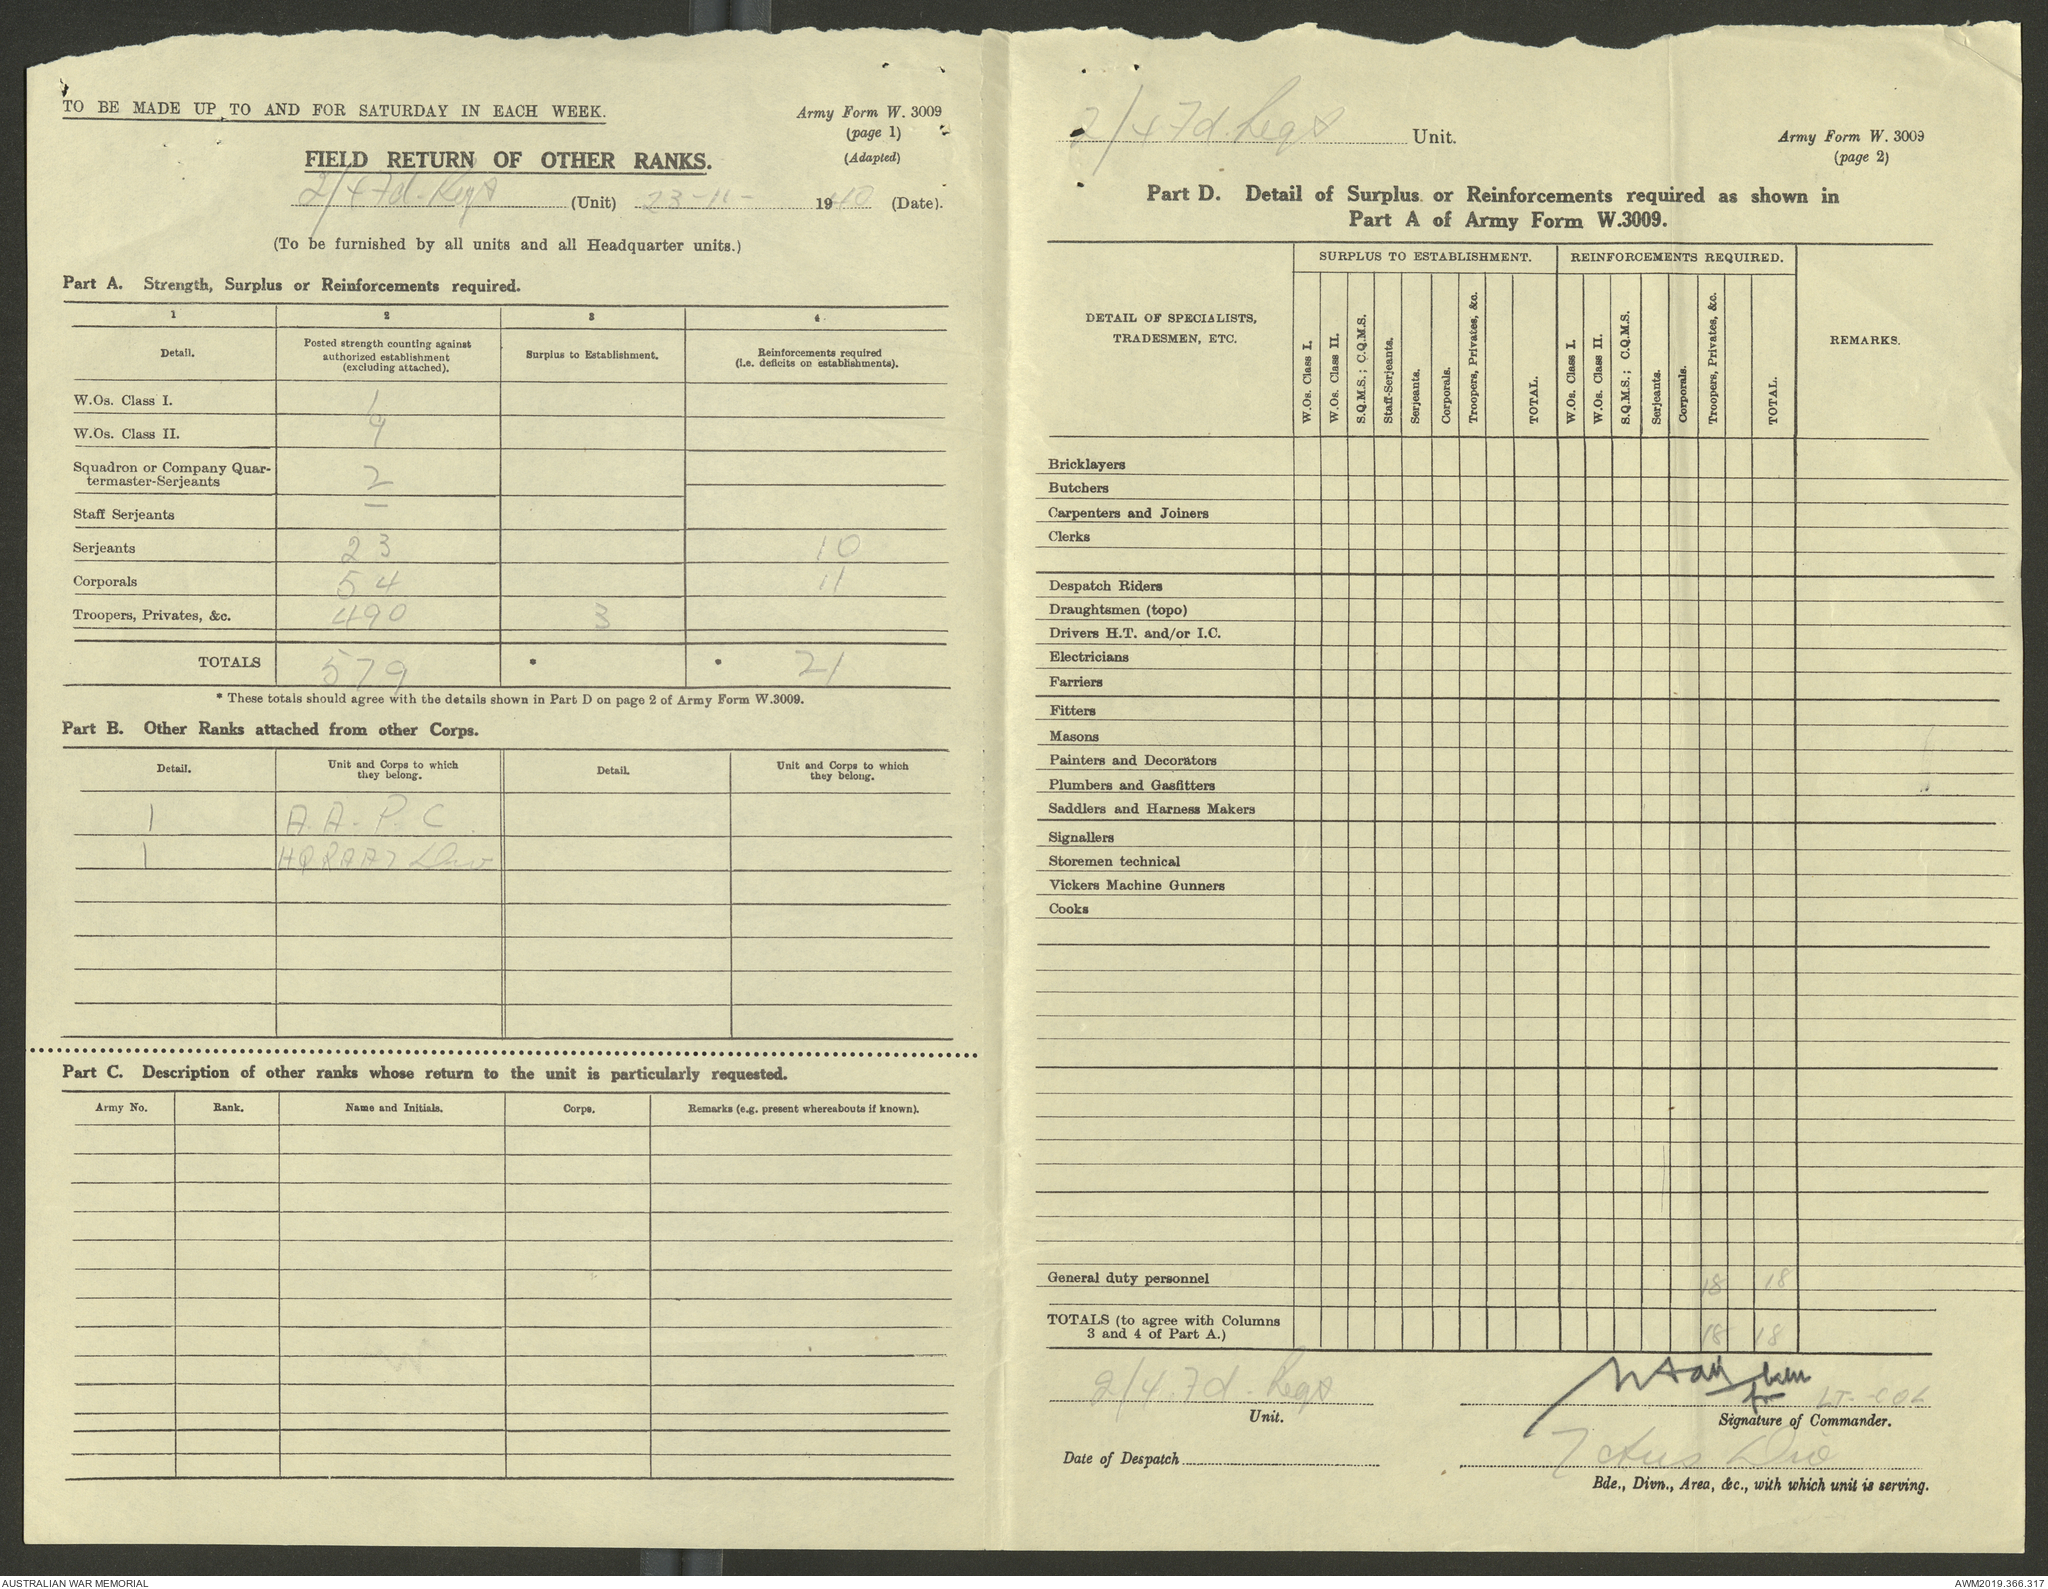 TO BE MADE UP TO AND FOR SATURDAY IN EACH WEEK.
Army Form W. 3009
(page 1)
(Adapted)
FIELD RETURN OF OTHER RANKS.
2/4 Fd. Regt (Unit) 23-11- 1940 (Date).
(To be furnished by all units and all Headquarter units.)
Part A. Strength, Surplus or Reinforcements required.
1 2 3 4
Detail. Posted strength counting against authorized establishment (excluding attached). Surplus to Establishment. Reinforcements required (i.e. deficits on establishments).
W.Os. Class I. 1
W.Os. Class II. 9
Squadron or Company Quar-
termaster-Serjeants 2
Staff Serjeants —
Serjeants 23 10
Corporals 54 11
Troopers, Privates, &c. 490 3
TOTALS 579 * * 21
* These totals should agree with the details shown in Part D on page 2 of Army Form W.3009.
Part B. Other Ranks attached from other Corps.
Detail. Unit and Corps to which they belong. Detail. Unit and Corps to which they belong.
1 A.A.P.C.
1 HQRAA 7 Div
Part C. Description of other ranks whose return to the unit is particularly requested.
Army No. Rank. Name and Initials. Corps. Remarks (e.g. present whereabouts if known).
2/4 Fd. Regt Unit.
Army Form W. 3009
(page 2)
Part D. Detail of Surplus or Reinforcements required as shown in
Part A of Army Form W.3009.
DETAIL OF SPECIALISTS, TRADESMEN, ETC. SURPLUS TO ESTABLISHMENT. REINFORCEMENTS REQUIRED. REMARKS.
W.Os. Class I. W.Os. Class II. S.Q.M.S.; C.Q.M.S. Staff-Serjeants. Serjeants. Corporals. Troopers, Privates, &c. TOTAL. W.Os. Class I. W.Os. Class II. S.Q.M.S.; C.Q.M.S. Serjeants. Corporals. Troopers, Privates, &c. TOTAL.
Bricklayers
Butchers
Carpenters and Joiners
Clerks
Despatch Riders
Draughtsmen (topo)
Drivers H.T. and/or I.C.
Electricians
Farriers
Fitters
Masons
Painters and Decorators
Plumbers and Gasfitters
Saddlers and Harness Makers
Signallers
Storemen technical
Vickers Machine Gunners
Cooks
General duty personnel 18 18
TOTALS (to agree with Columns
3 and 4 of Part A.) 18 18
2/4 Fd. Regt
Unit.
for LT-COL
Signature of Commander.
Date of Despatch
7 Aus Div
Bde., Divn., Area, &c., with which unit is serving.
AUSTRALIAN WAR MEMORIAL
AWM2019.366.317